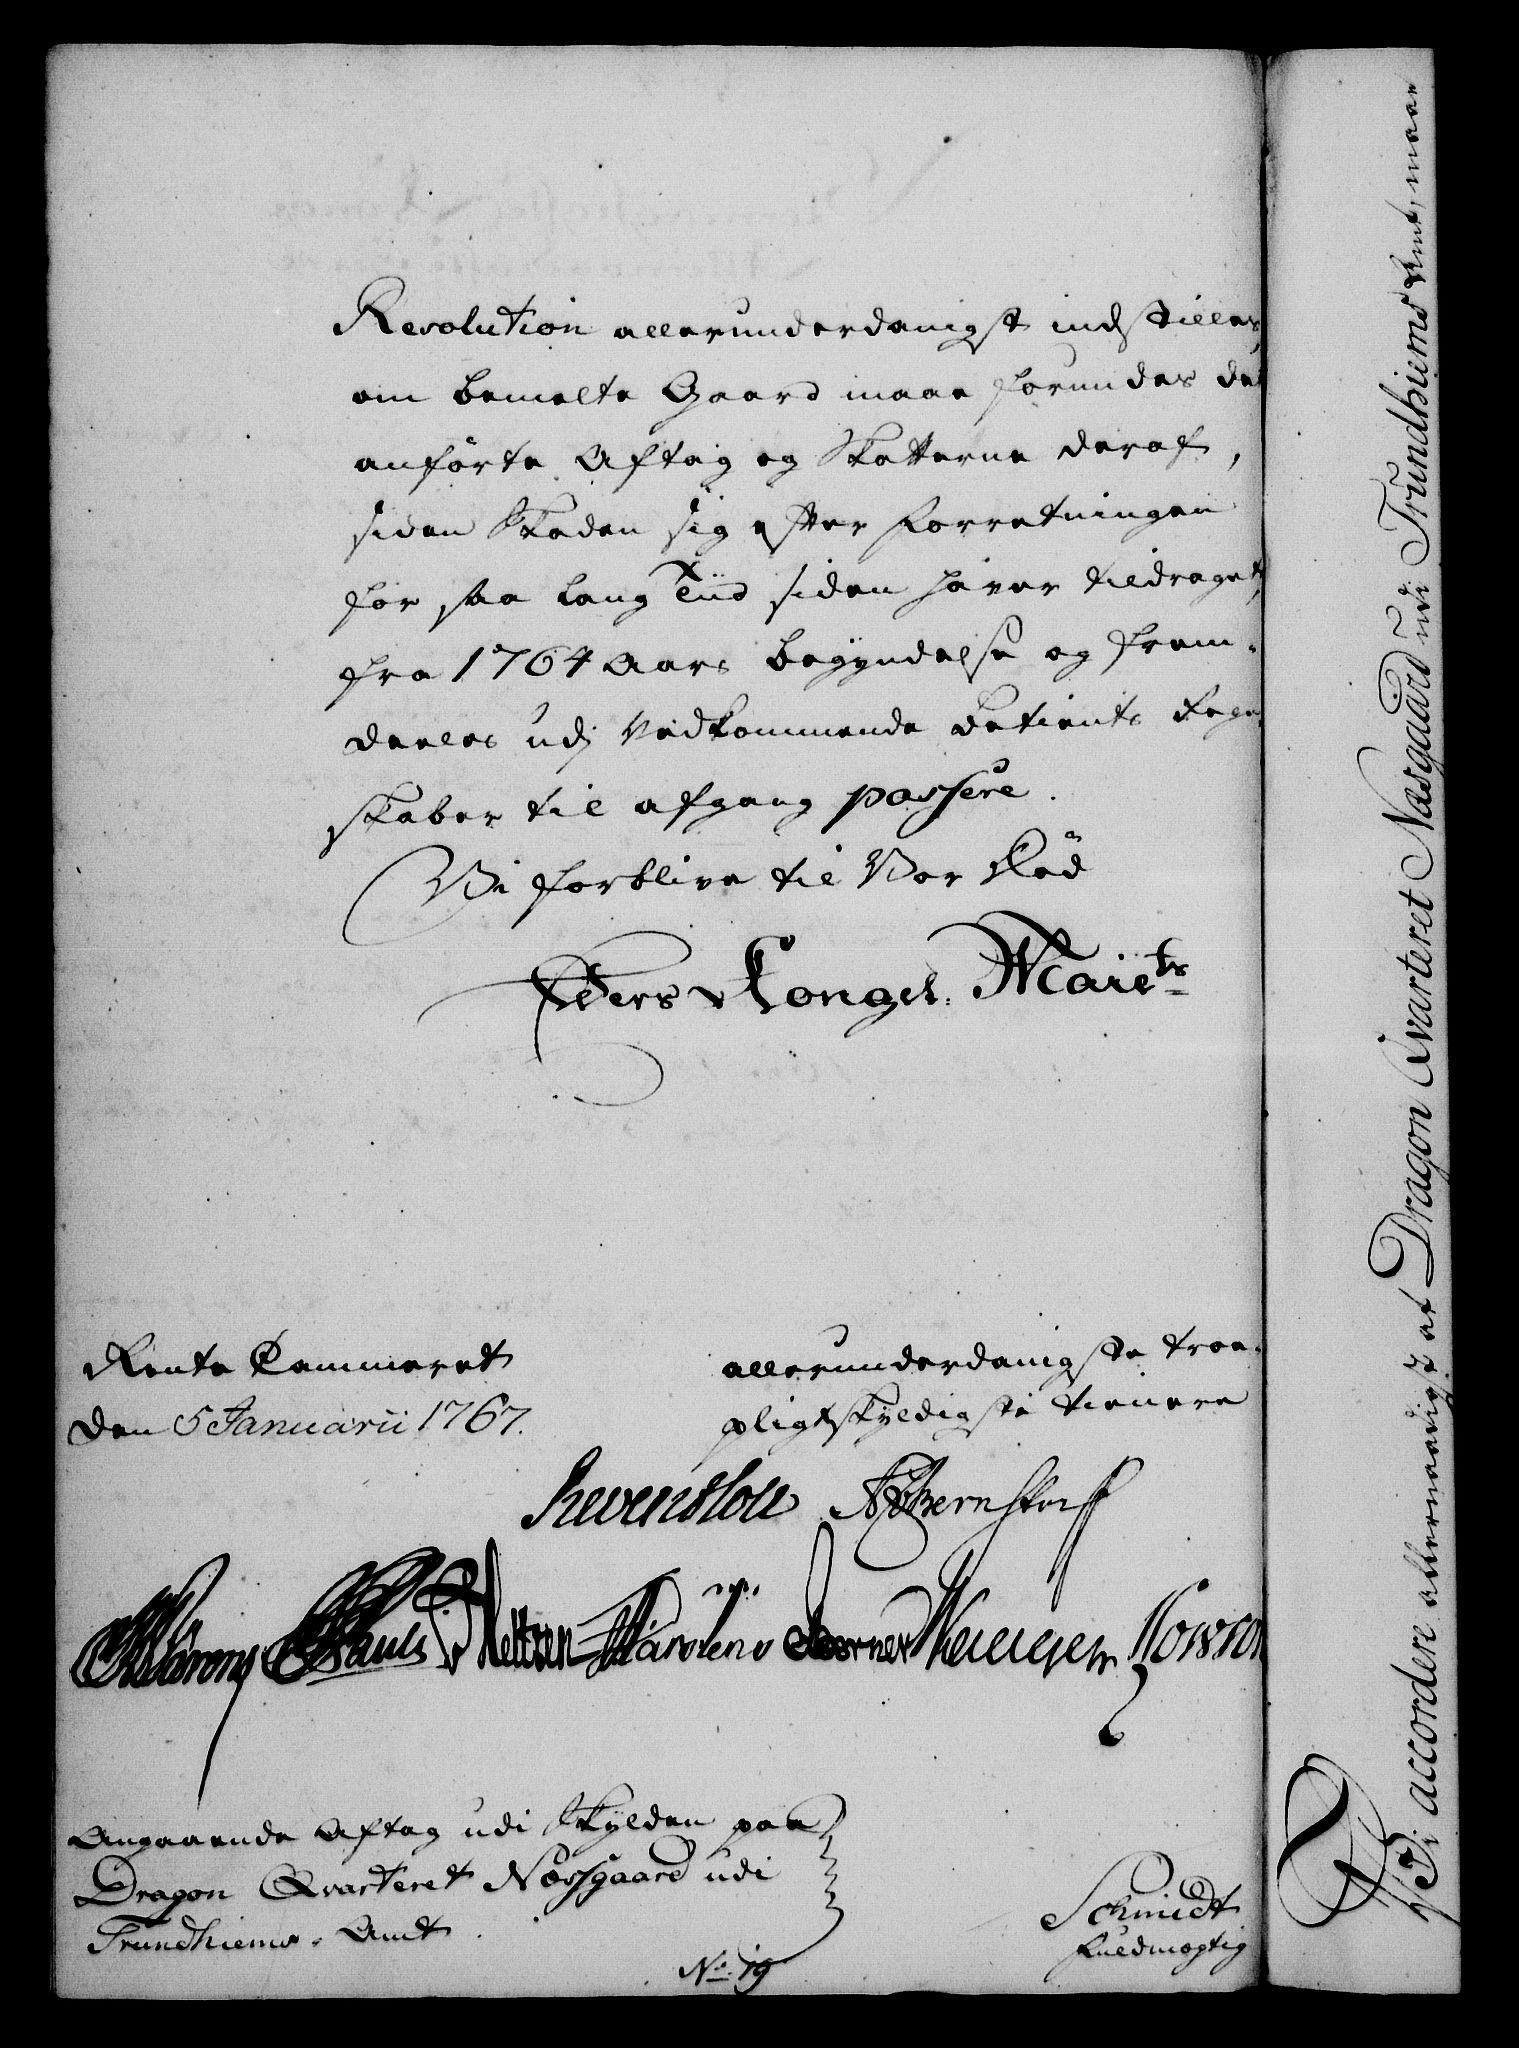 Resolution allerunderdanigst indstilles,
om bemelte Gaard maae forundes det
anførte Aftag og Skatterne deraf,
siden Skaden sig efter Forretningen
for saa lang Tiid siden haver tildraget,
fra 1764 Aars begyndelse og frem-
deeles udj Vedkommende Betients Regn-
skaber til afgang passere.
Vi forblive til Vor Død
Eders Kongel. Maiets
Rente Cammeret
den 5 Januarii 1767.
allerunderdanigste troe-
pligtskyldigste tienere
Reventlou Bernstorff
Pauli Holtzen Wenigen
Angaaende Aftag udi Skylden paa
Dragon Qvarteret Næssgaard udi
Trundhiems Amt.
Schmidt
Fuldmægtig
No. 19
Vi accordere allernaadigst at Dragon Qvarteret Næsgaard udi Trundhiems Amt, maae